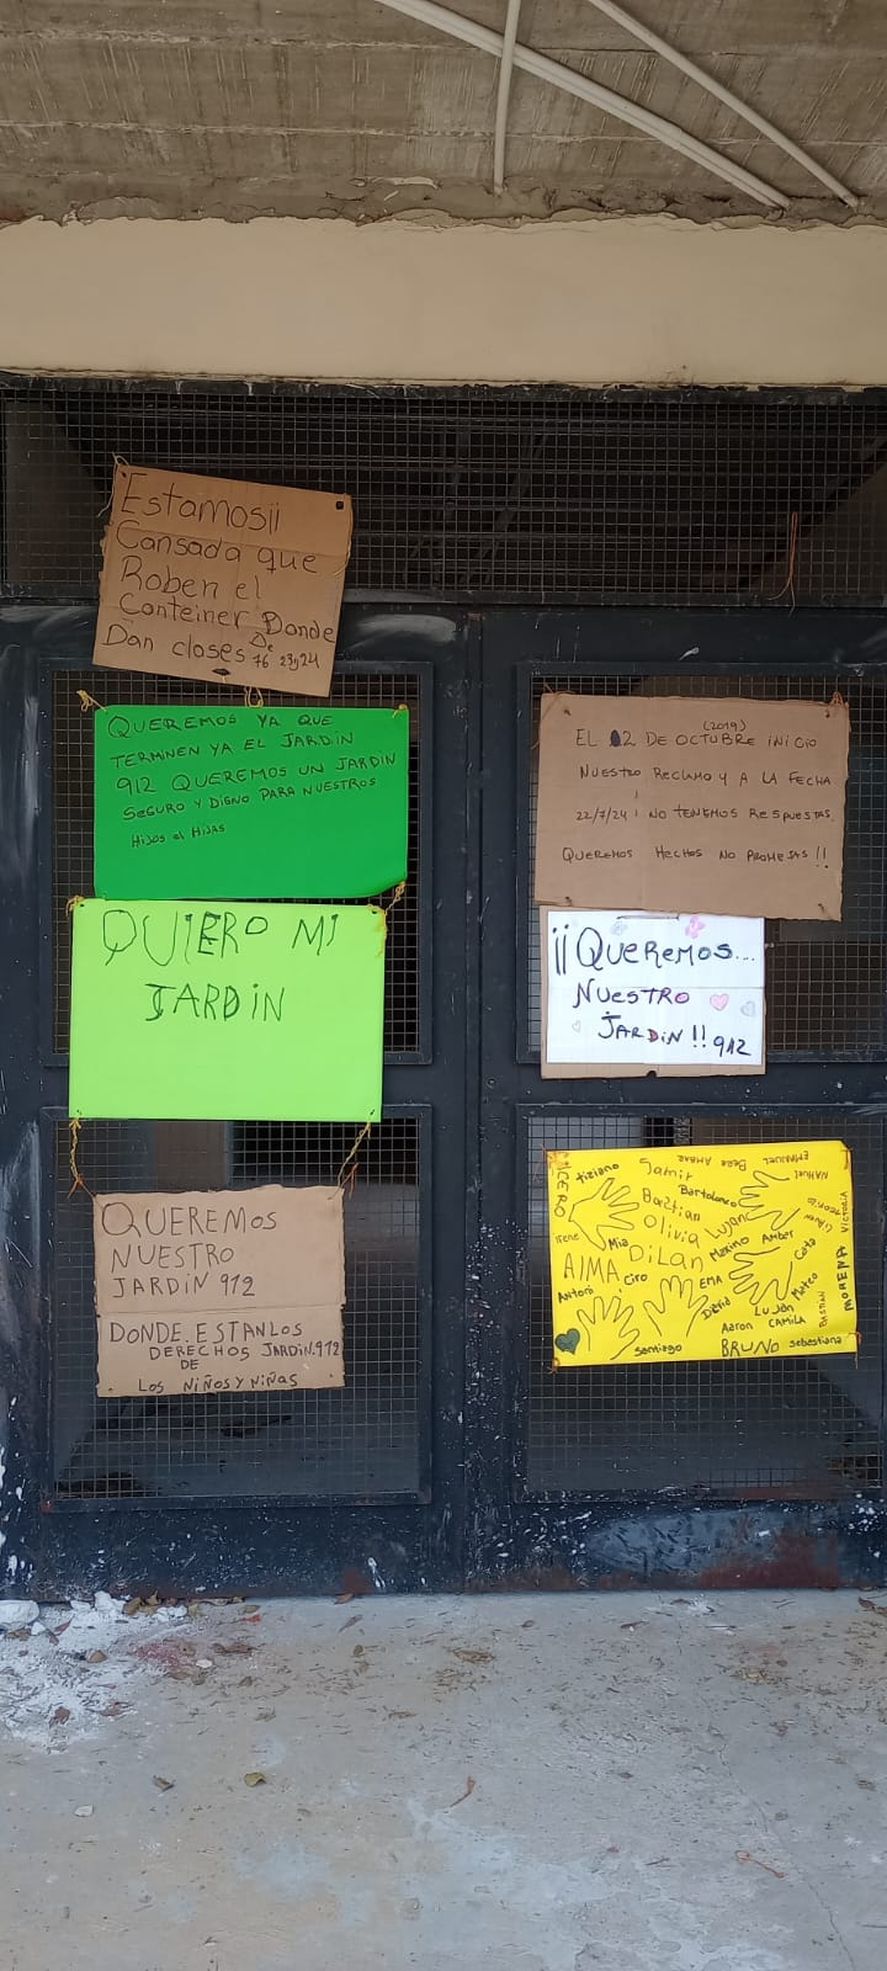 Estamos¡¡
Cansada que
Roben el
Conteiner Donde
Dan clases De
76 23y24
QUEREMOS YA QUE
TERMINEN YA EL JARDIN
912 QUEREMOS UN JARDIN
SEGURO Y DIGNO PARA NUESTROS
HiJOS el HiJAS
QUIERO MI
JARDIN
QUEREMOS
NUESTRO
JARDIN 912
DONDE ESTAN LOS
DERECHOS JARDIN.912
DE
LOS NIÑOS Y NIÑAS
(2019)
EL 02 DE OCTUBRE INICIO
NUESTRO RECLAMO Y A LA FECHA
22/7/24 NO TENEMOS RESPUESTAS.
QUEREMOS HECHOS NO PROMESAS !!
¡¡QUEREMOS...
NUESTRO
JARDIN !! 912
CICERO
tiziano
Samir
AMBAR
EMMANUEL
NAHUEL
Bastian
Bartolomeo
Olivia
Lujan
VICTORIA
Irene
Mia
AIMA
DiLan
Maximo
Amber
Cata
Antoni
Ciro
EMA
Mateo
MORENA
Lujan
BASTIAN
Aaron
CAMiLA
Santiago
BRUNO
sebastiana